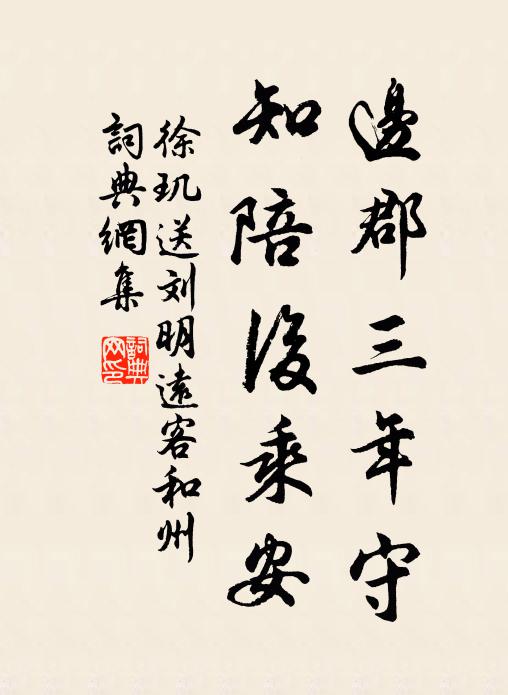 邊郡三年守
知陪後乘安
徐玑送刘明遠客和州
詞典網集
詞典網印